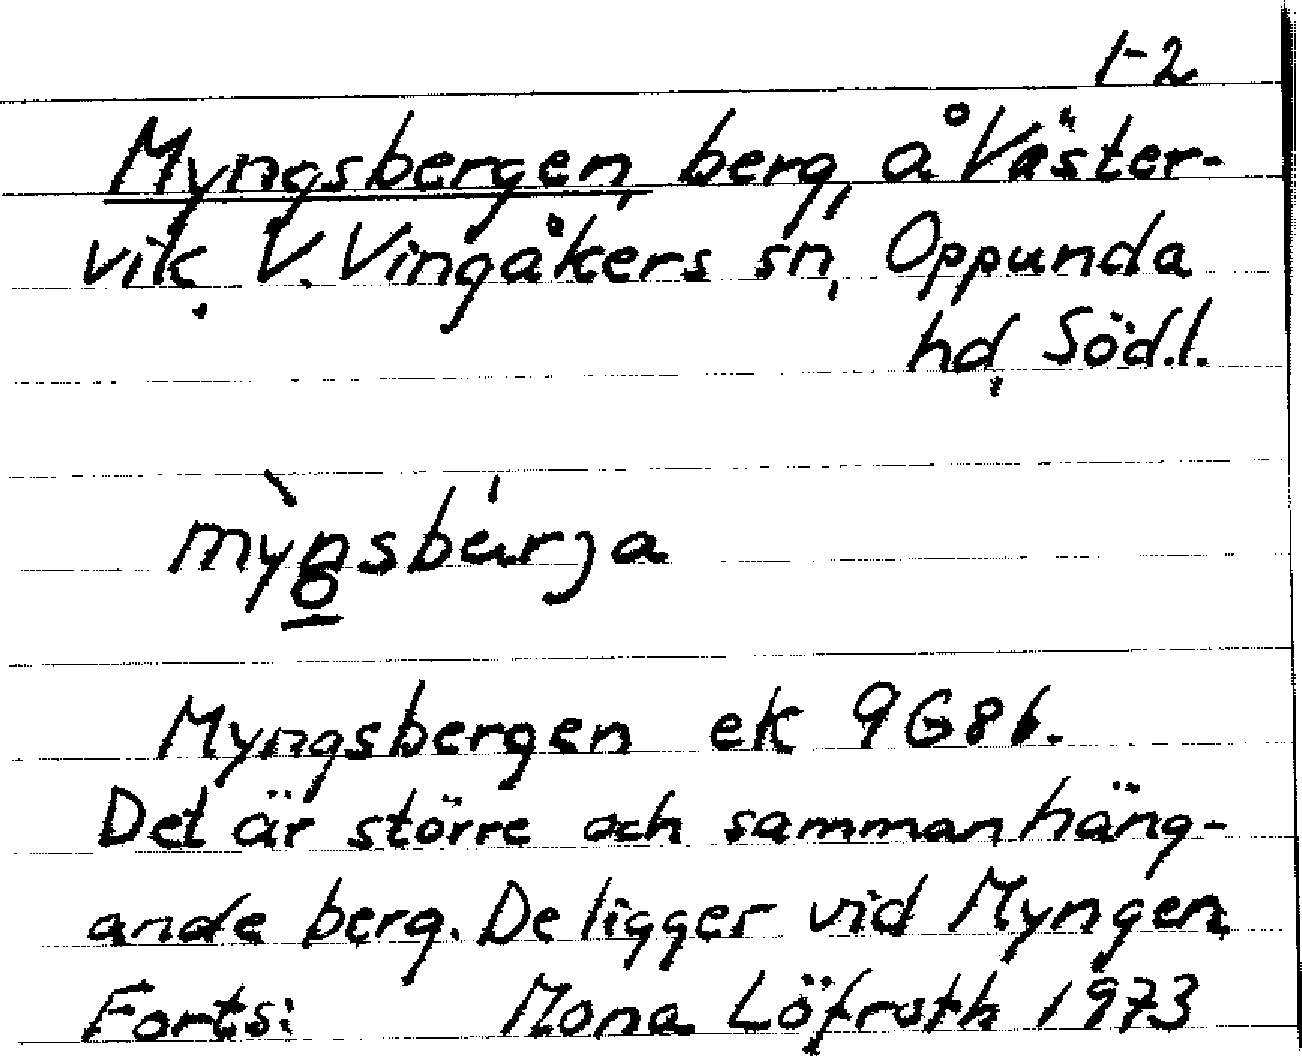 1-2
Myngsbergen, berg, å Väster-
vik, V. Vingåkers sn, Oppunda
hd, Söd.l.
mỳŋsbárja
Myngsbergen ek 9G8b.
Det är större och sammanhäng-
ande berg. De ligger vid Myngen
Forts: Mona Löfroth 1973